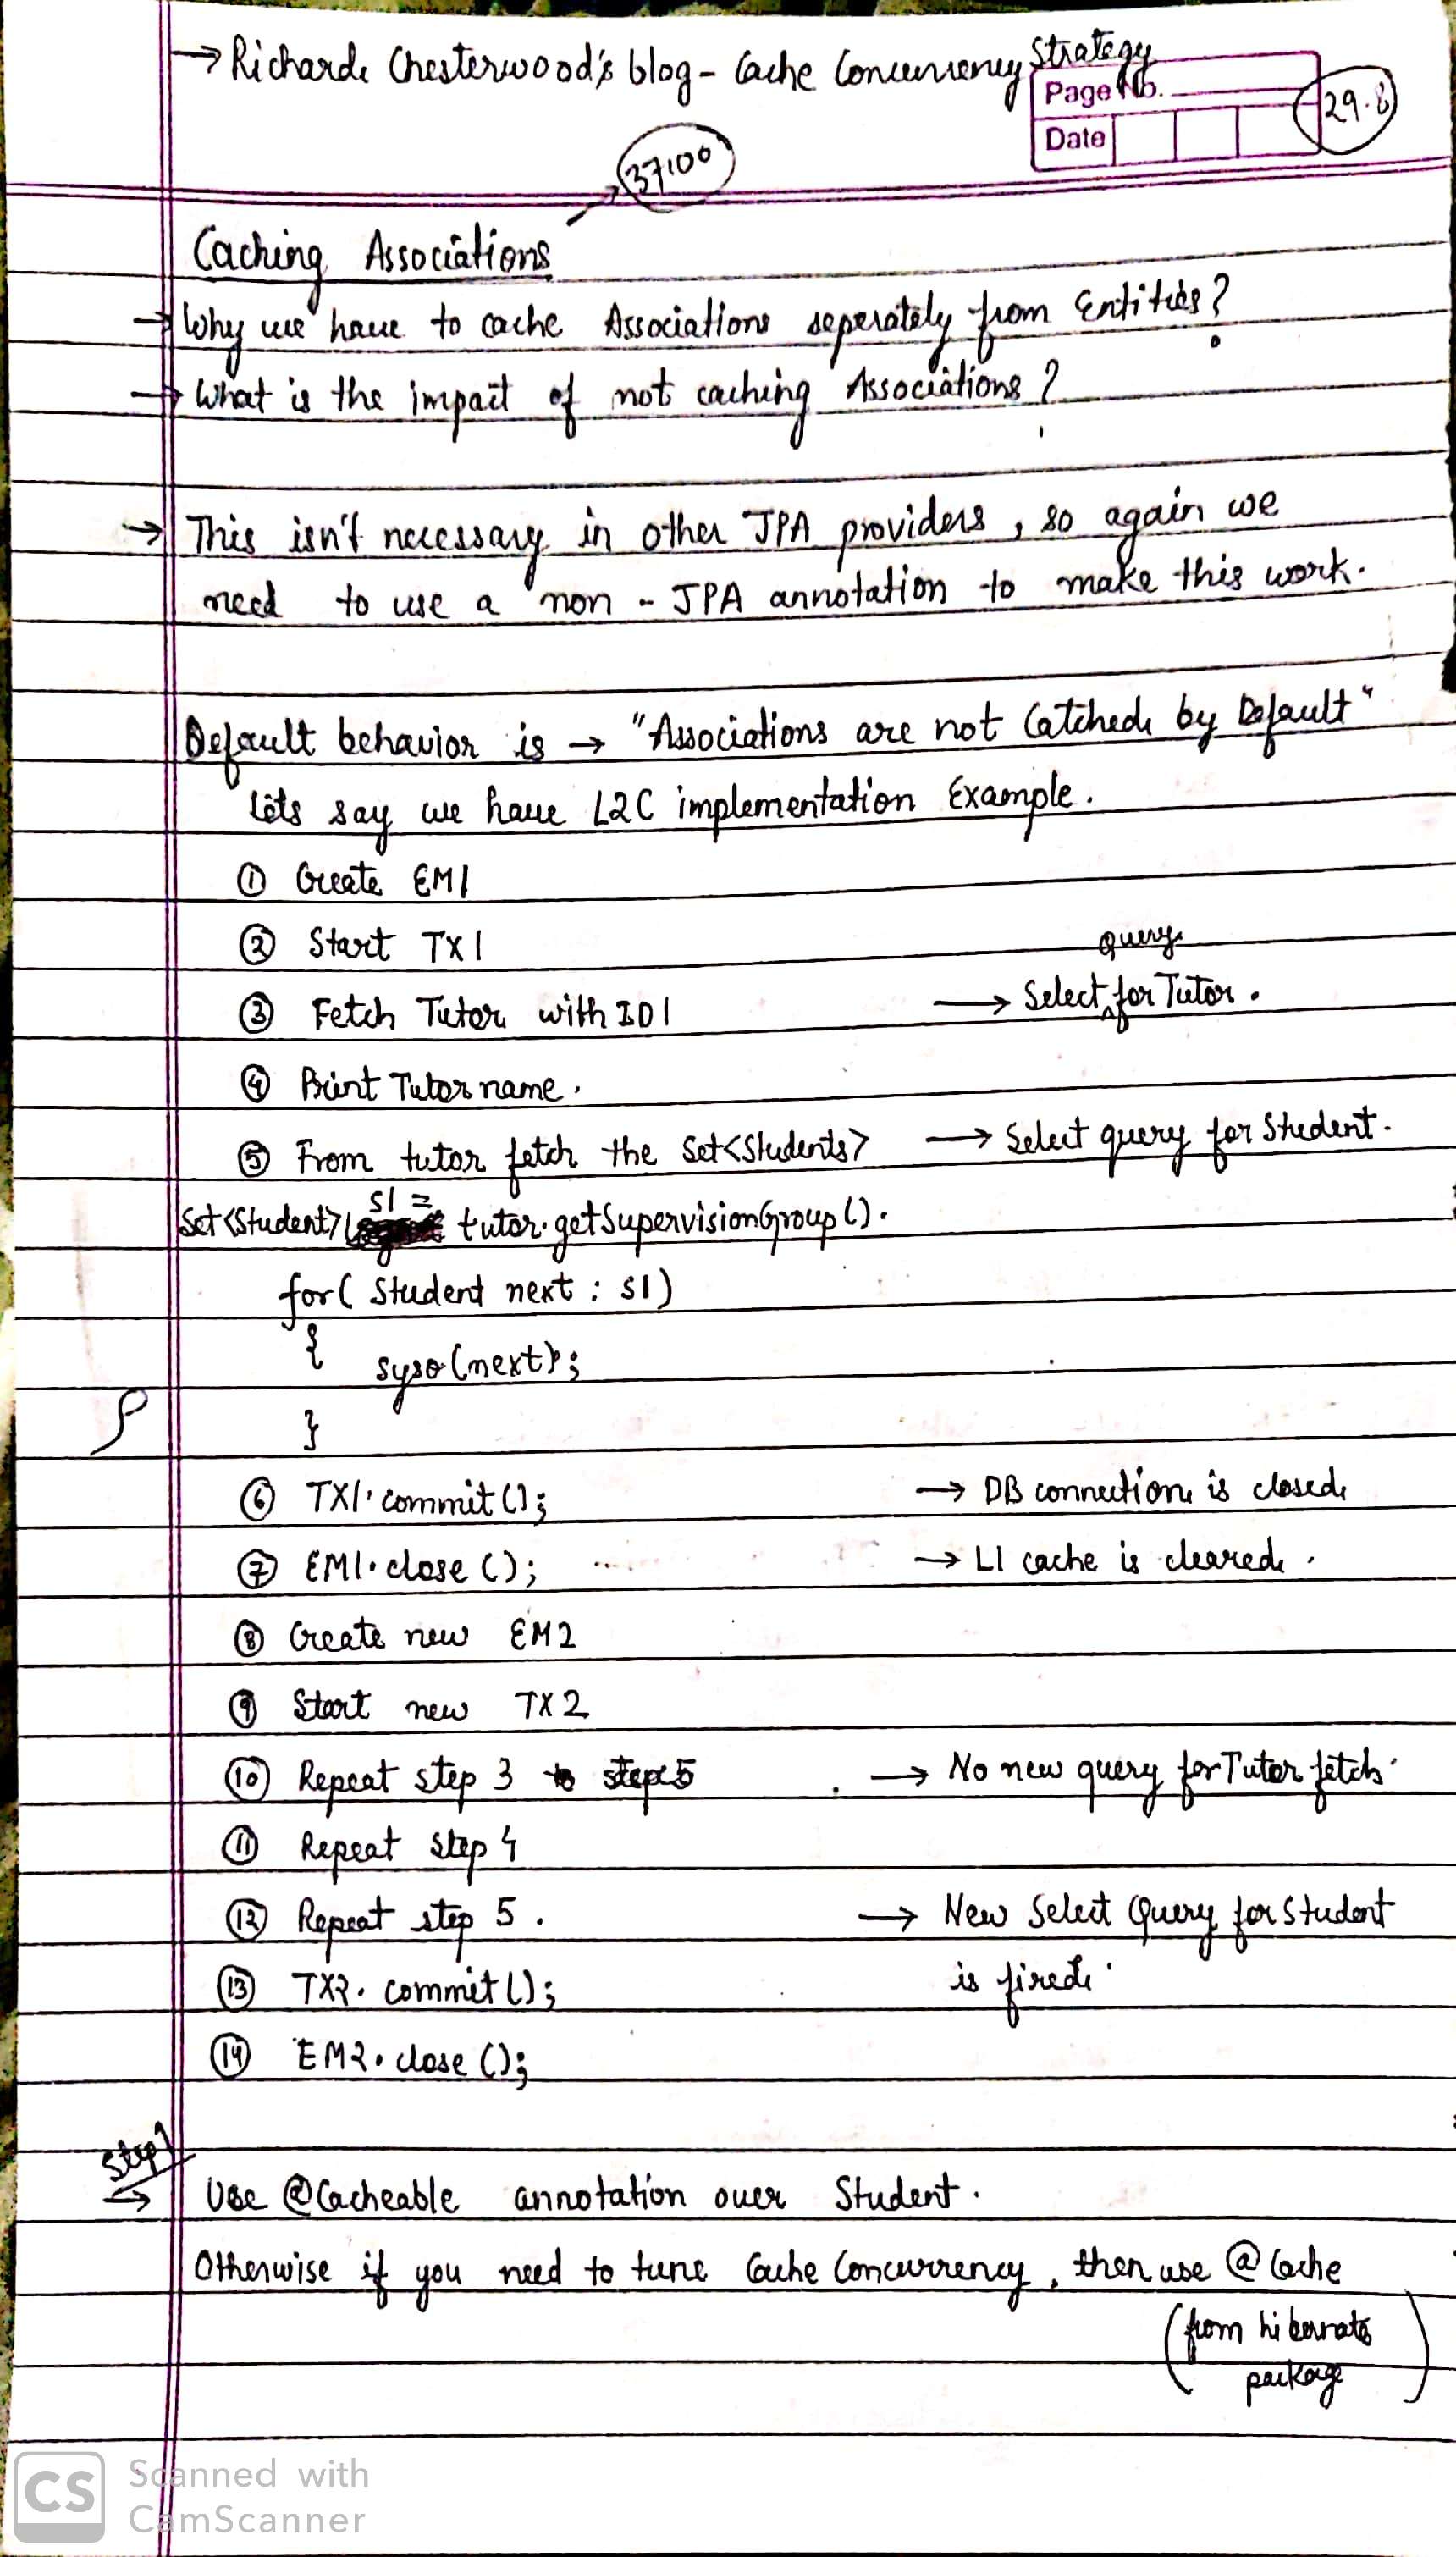 → Richard Chesterwood's blog - Cache Concurrency Strategy
Page No.
29.8
Date
37:00
Caching Associations
→ Why we have to cache Associations seperately from Entities?
→ What is the impact of not caching Associations?
→ This isn't necessary in other JPA providers, so again we
need to use a non - JPA annotation to make this work.
Default behavior is → "Associations are not Catched by Default"
Lets say we have L2C implementation Example.
① Create EM1
② Start TX1
③ Fetch Tutor with ID1 → Select query for Tutor.
④ Print Tutor name.
⑤ From tutor fetch the Set<Students> → Select query for Student.
Set<Student> S1 = tutor.getSupervisionGroup().
for( Student next : S1)
{
syso(next);
}
⑥ TX1.commit(); → DB connection is closed
⑦ EM1.close(); → L1 cache is cleared.
⑧ Create new EM2
⑨ Start new TX2
⑩ Repeat step 3 → No new query for Tutor fetch.
⑪ Repeat step 4
⑫ Repeat step 5. → New Select Query for Student
is fired.
⑬ TX2.commit();
⑭ EM2.close();
Step 1
→ Use @Cacheable annotation over Student.
Otherwise if you need to tune Cache Concurrency, then use @Cache
(from hibernate
package)
CS Scanned with
CamScanner